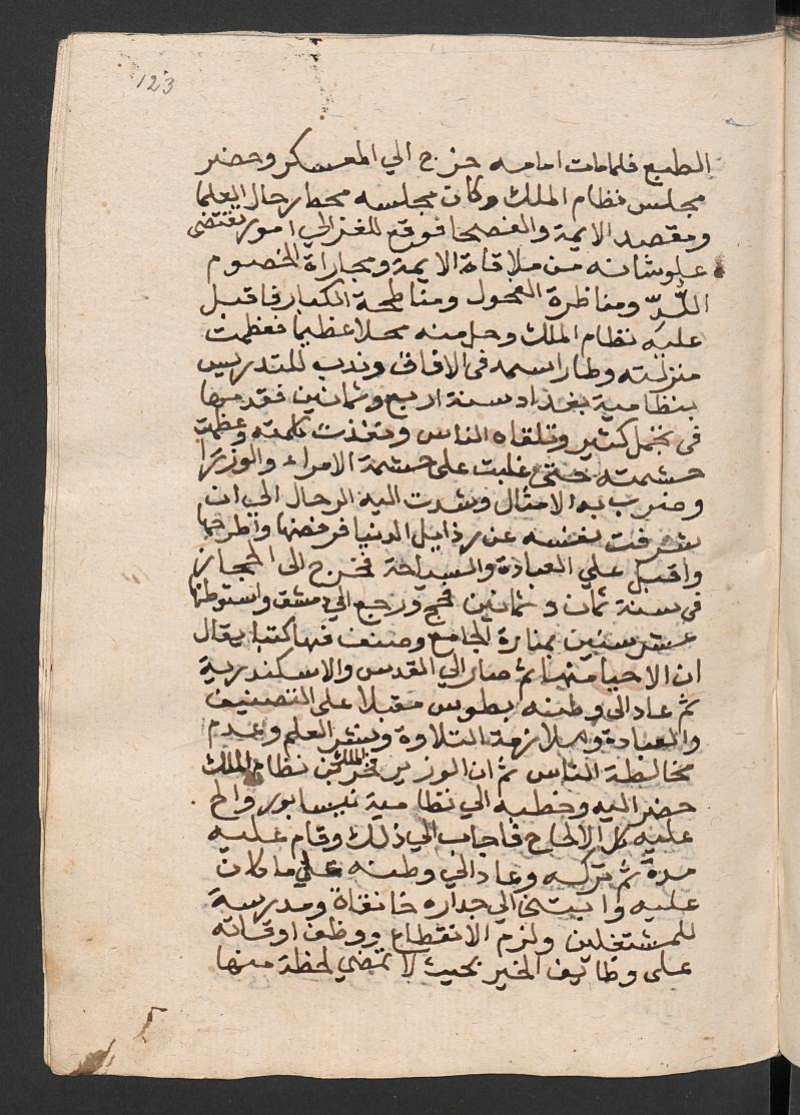 123
الطبع فلمامات امامه خرج الي المعسكر وحضر
مجلس نظام الملك وكان مجلسه محط رحال العلما
ومقصد الايمة والفصحا فوقع للغزالي امور تقتضي
علوشانه من ملاقاة الايمة ومجاراة الخصوم
اللُّدِّ ومناظرة الفحول ومناطحة الكبار فاقبل
عليه نظام الملك وحل منه محلا عظيما فعظمت
منزلته وطار اسمه في الافاق وندب للتدريس
بنظامية بغداد سنة اربع وثمانين فقدمها
في تجمل كثير وتلقاه الناس ونفذت كلمته وعظمت
حشمته حتى غلبت على حشمة الامراء والوزرا
وضرب به الامثال وشدت اليه الرحال الي ان
شرفت نفسه عن رذايل الدنيا فرفضها واطرحها
واقبل علي العبادة والسياحة فخرج الى الحجاز
في سنة ثمان وثمانين فحج ورجع الي دمشق واستوطنها
عشر سنين بمنارة الجامع وصنف فيها كتبا يقال
ان الاحيا منها ثم صار الي القدس والاسكندرية
ثم عاد الى وطنه بطوس مقبلا على التصنيف
والعبادة وملازمة التلاوة ونشر العلم وعدم
مخالطة الناس ثم ان الوزير فخر الملك بن نظام الملك
حضر اليه وخطبه الي نظامية نيسابور والح
عليه كل الالحاح فاجاب الي ذلك وقام عليه
مدة ثم تركه وعاد الي وطنه علي ما كان
عليه وابتنى الي جداره خانقاة ومدرسة
للمشتغلين ولزم الانقطاع ووظف اوقاته
على وظايف الخير بحيث لا تمضي لحظة منها